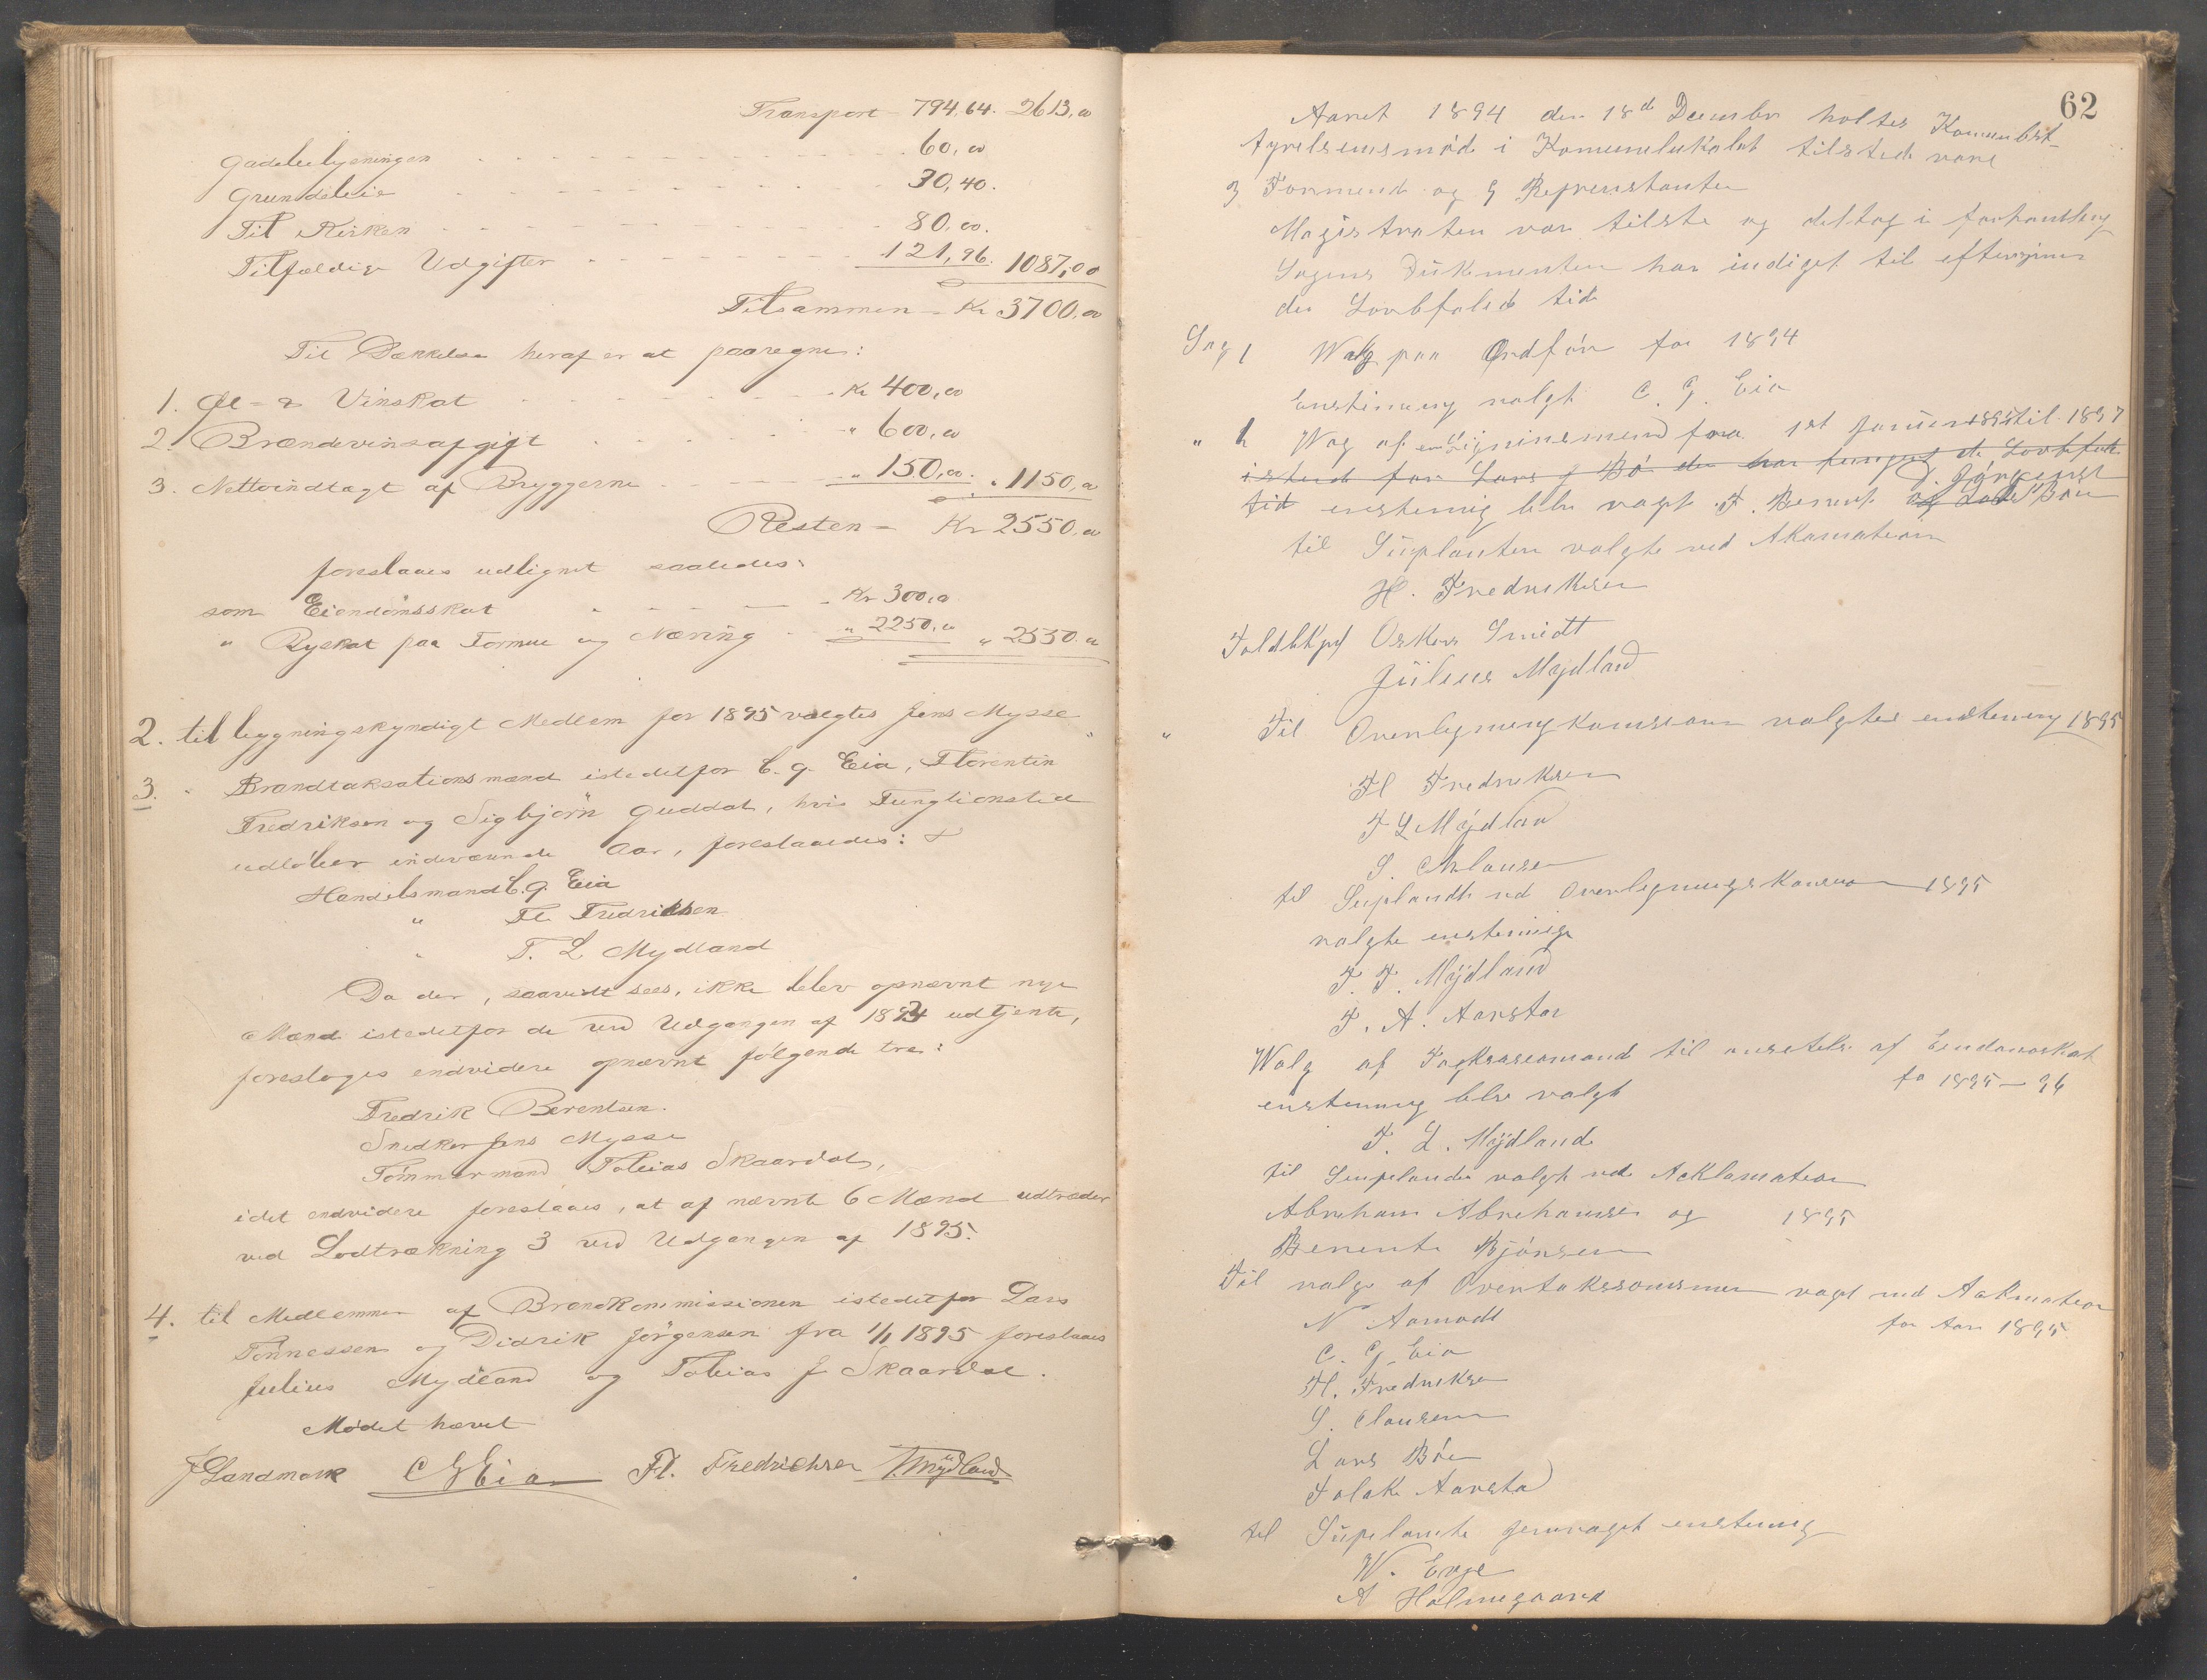 Transport 794,64. 2613,00
Gadebelysningen 60,00
Grundeleie 30,40.
Til Kirken 80,00.
Tilfældige Udgifter 121,96. 1087,00
Tilsammen - Kr 3700,00
Til Dækkelse heraf er at paaregne:
1. Øl- & Vinskat Kr 400,00
2. Brændevinsafgift " 600,00
3. Nettoindtægt af Bryggerne " 150,00. " 1150,00
Resten - Kr 2550,00
foreslaaes udlignet saaledes:
som Eiendomsskat Kr 300,00
" Byskat paa Formue og Næring " 2250,00 " 2550,00
2. til bygningskyndigt Medlem for 1895 valgtes Jens Mysse
3. " Brandtaksationsmænd istedetfor C. G. Eia, Florentin
Fredriksen og Sigbjörn Guddal, hvis Fungtionstid
udløber indeværende Aar, foreslaaedes:
Handelsmand C. G. Eia
" Fl. Fredriksen
" T. L Mydland
Da der, saavidt sees, ikke blev opnævnt nye
Mænd istedetfor de ved Udgangen af 1893 udtjente,
foresloges endvidere opnævnt følgende tre:
Fredrik Berentsen.
Snedker Jens Mysse
Tømmermand Tobias Skaardal,
idet endvidere foreslaaes, at af nævnte 6 Mænd udtræder
ved Lodtrækning 3 ved Udgangen af 1895.
4. til Medlemmer af Brandkommissionen istedetfor Lars
Tönnessen og Didrik Jörgensen fra 1/1 1895 foreslaaes
Julius Mydland og Tobias J Skaardal.
Mødet hævet
J Landmark C G Eia Fl. Fredrichsen T. Mydland
62
Aaret 1894 den 18d Decembr holtes Komunebst
tyrelsensmöde i Komunelukalet tilstede vare
3 Formend og 9 Reprenstanter
Magistraten var tilste og deltog i forhandling
Sagens Dükmenter har indiget til eftersyn
den Lovbfaled tid
Sag 1 Walg paa Ordför for 1894
Enstimmig valgt C. G. Eia
" 2 Wag af mend fra 1st til 1897
istend for Lars J Bö der har de Lovbfal
tid enstemig blev vagt F. Berent D. Jörgenst
til Süplanter valgte ved Akamation
H. Fredriksen
Toldbkjn Oskar Smidt
Jülius Mydland
" Til Overlignengkomsion valgtes enstemig 1895
Fl Fredriksen
T L Mydlan
S. Clausen
til Suplandt ved Overlignengskomsion 1895
valgte enstemige
T. T. Mÿdland
T. A. Aarstad
Walg af mand til ansetelse af Eiendomskat
fo 1895 - 96
enstemig blev valgt
T. L. Mÿdland
til Suplandt valgt ved Acklamation
Abreham Abrehamsen og 1895
Berent Bjönsen
Til valg af Overtakssonsmen vagt ved Aakmation
for Aar 1895
N Aamodt
C. G. Eia
Fl. Fredriksen
S. Clausen
Lars Böe
Folak Aarstad
til Süplante genvaget enstemig
W. Evje
A Holmegaard